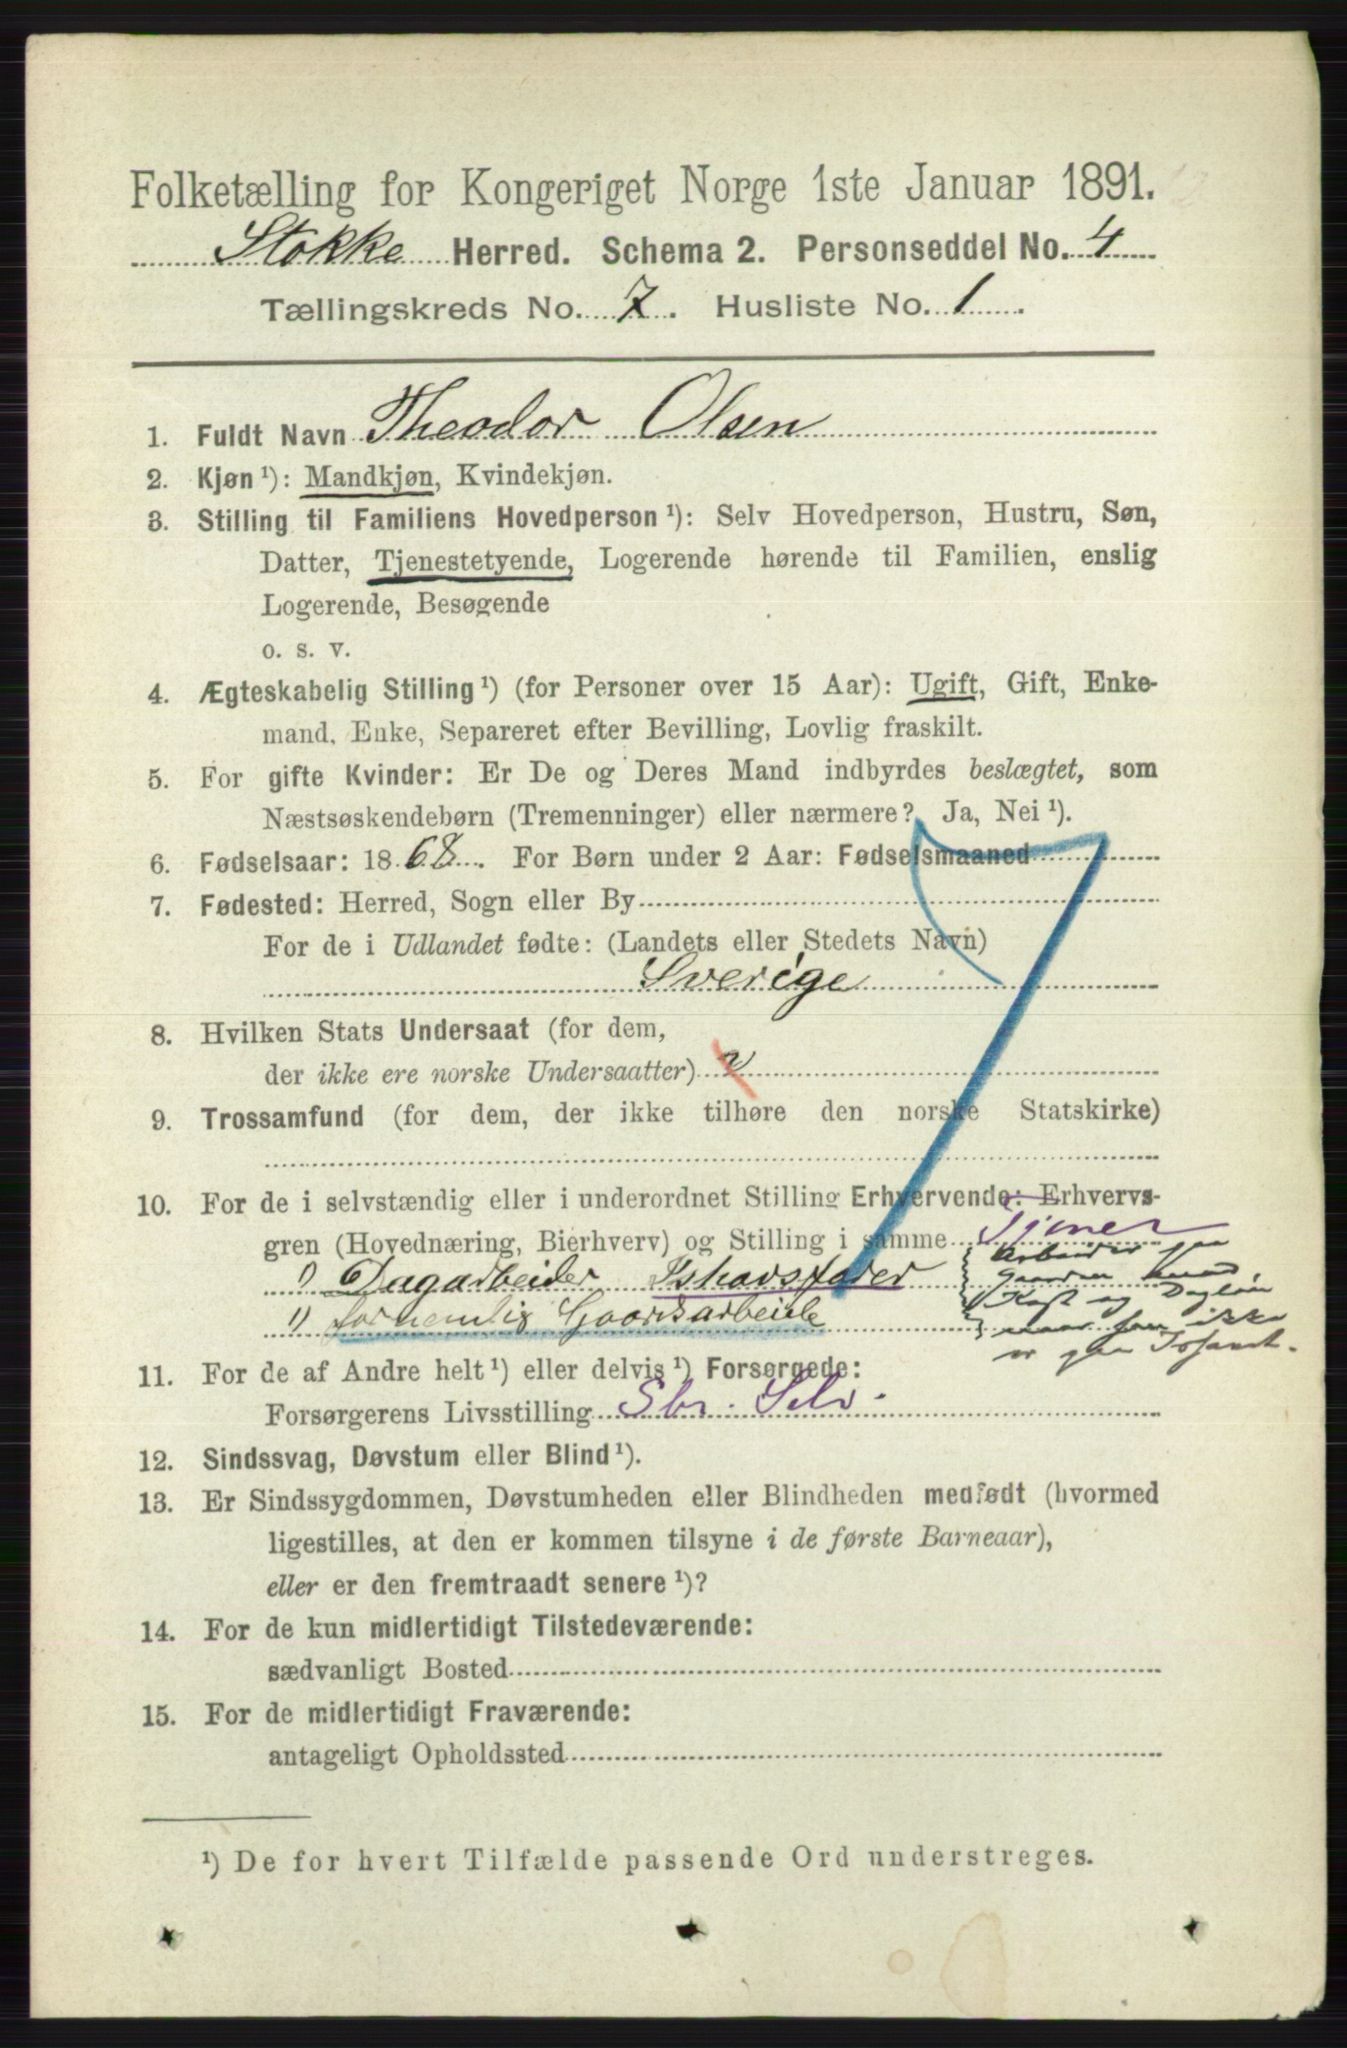 Folketælling for Kongeriget Norge 1ste Januar 1891.
Stokke Herred. Schema 2. Personseddel No. 4
Tællingskreds No. 7. Husliste No. 1
1. Fuldt Navn Theodor Olsen
2. Kjøn ¹): Mandkjøn, Kvindekjøn.
3. Stilling til Familiens Hovedperson ¹): Selv Hovedperson, Hustru, Søn,
Datter, Tjenestetyende, Logerende hørende til Familien, enslig
Logerende, Besøgende
o. s. v.
4. Ægteskabelig Stilling ¹) (for Personer over 15 Aar): Ugift, Gift, Enke-
mand, Enke, Separeret efter Bevilling, Lovlig fraskilt.
5. For gifte Kvinder: Er De og Deres Mand indbyrdes beslægtet, som
Næstsøskendebørn (Tremenninger) eller nærmere? Ja, Nei ¹).
6. Fødselsaar: 1868. For Børn under 2 Aar: Fødselsmaaned
7. Fødested: Herred, Sogn eller By
For de i Udlandet fødte: (Landets eller Stedets Navn)
Sverige
8. Hvilken Stats Undersaat (for dem,
der ikke ere norske Undersaatter) n
9. Trossamfund (for dem, der ikke tilhøre den norske Statskirke)
10. For de i selvstændig eller i underordnet Stilling Erhvervende: Erhvervs-
gren (Hovednæring, Bierhverv) og Stilling i samme Tjener
1) Dagarbeider Ishavsfarer Arbeider paa
1) fornemlig Gaardsarbeide Gaarden mod
Kost og Dagløn
naar han ikke
er paa Ishavet.
11. For de af Andre helt ¹) eller delvis ¹) Forsørgede:
Forsørgerens Livsstilling Sbr. Selv.
12. Sindssvag, Døvstum eller Blind ¹).
13. Er Sindssygdommen, Døvstumheden eller Blindheden medfødt (hvormed
ligestilles, at den er kommen tilsyne i de første Barneaar),
eller er den fremtraadt senere ¹)?
14. For de kun midlertidigt Tilstedeværende:
sædvanligt Bosted
15. For de midlertidigt Fraværende:
antageligt Opholdssted
¹) De for hvert Tilfælde passende Ord understreges.